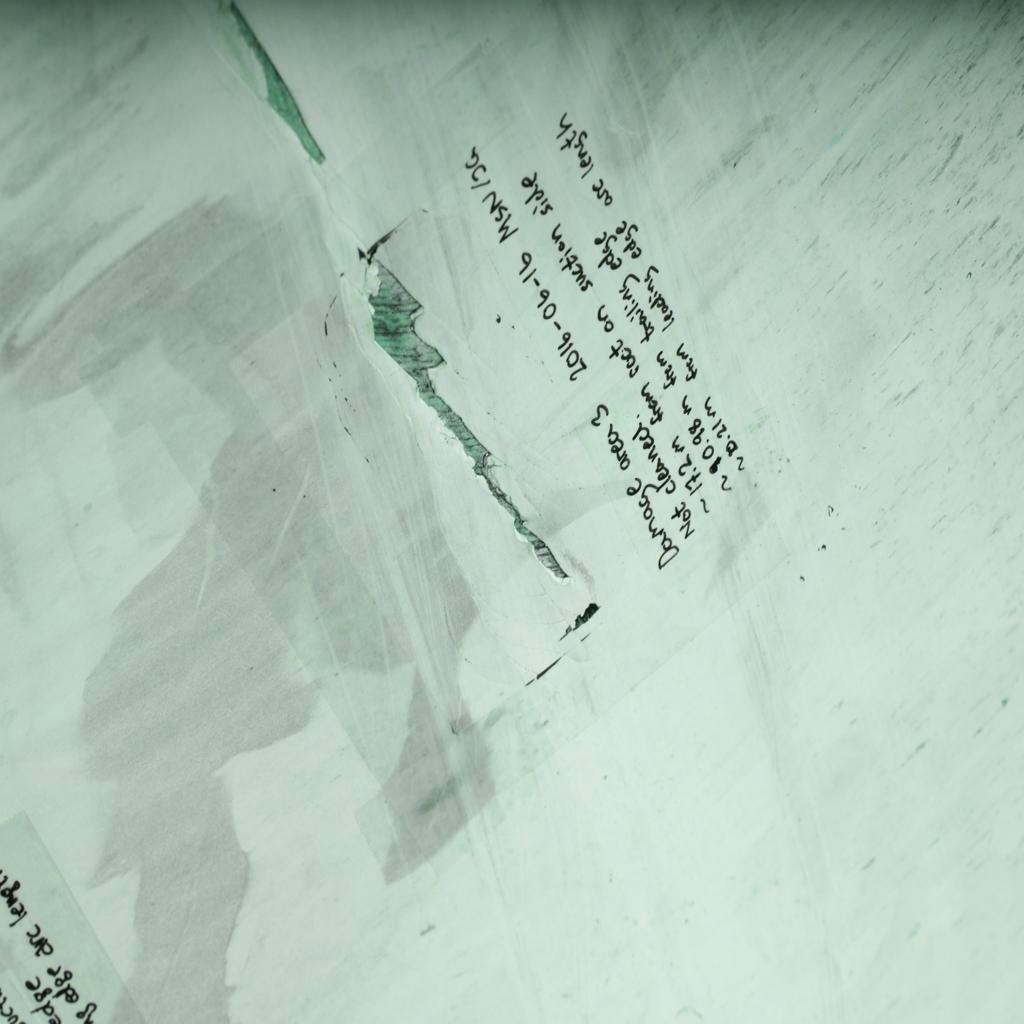 2016-09-19 MSN/
Damage area 3
Not cleaned.
~ 17.2 m from root on suction side
~ 0.98 m from trailing edge
~ 0.21 m from leading edge arc length
edge
edge arc length